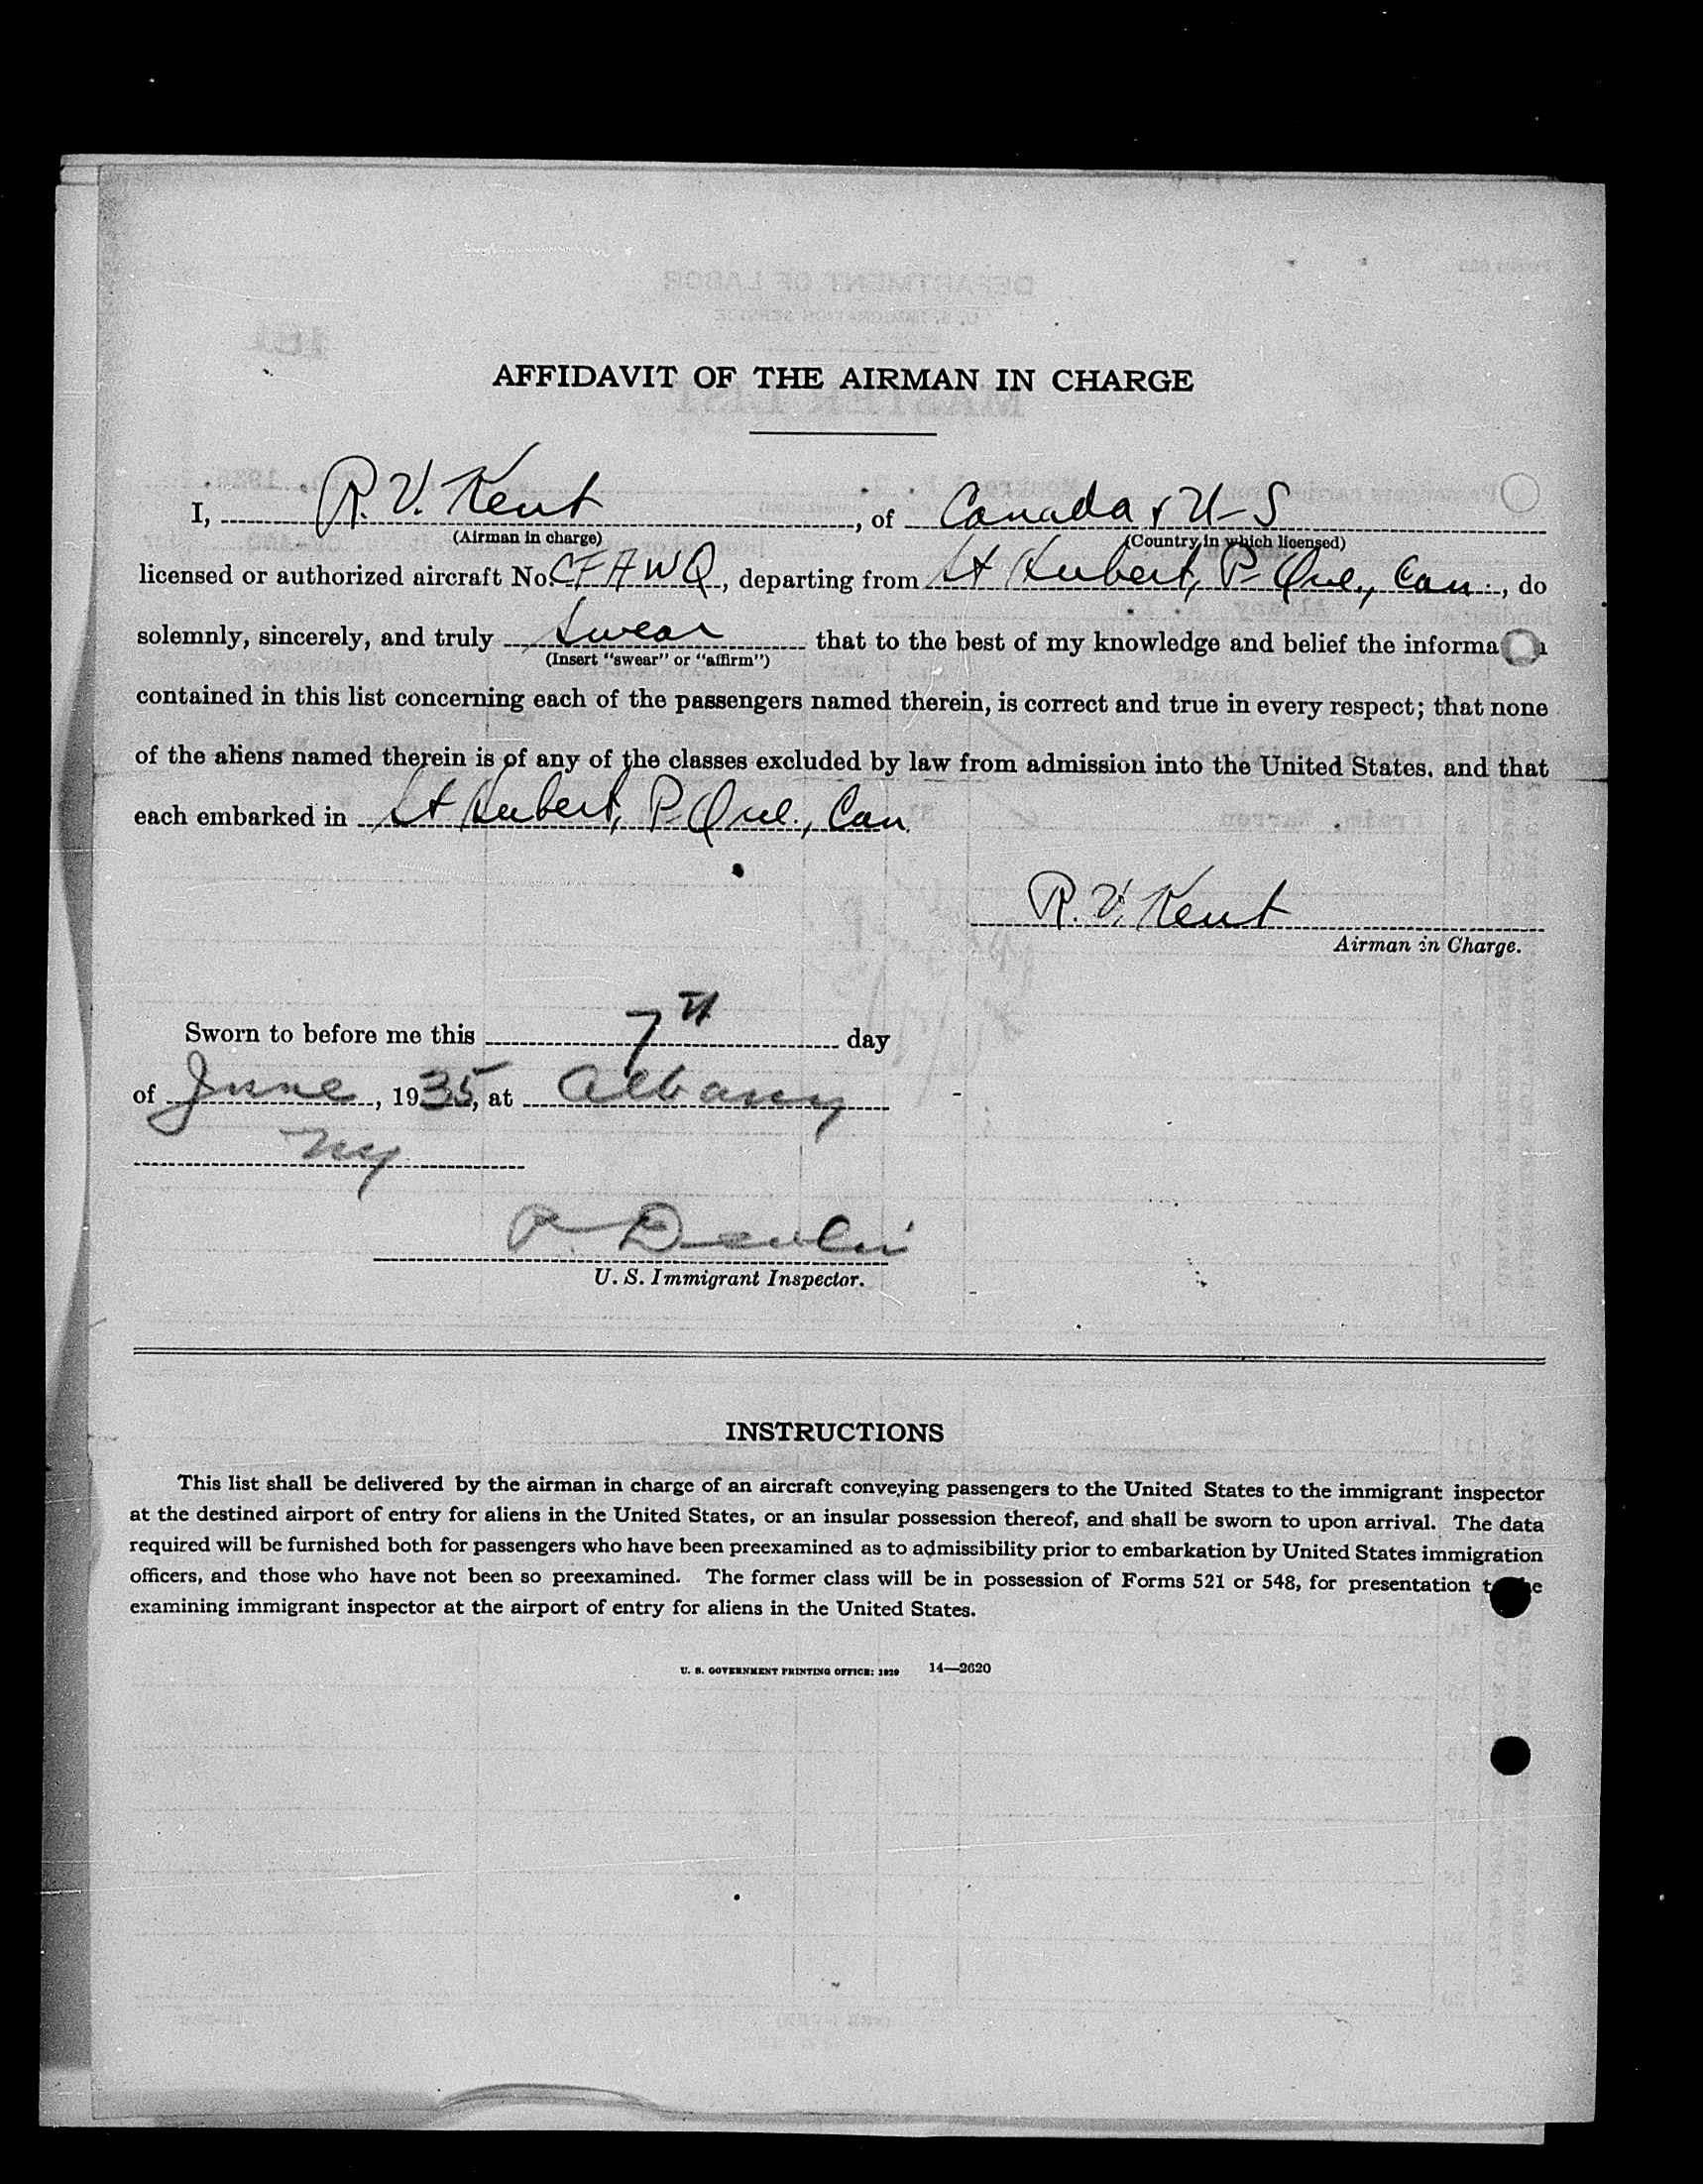 AFFIDAVIT OF THE AIRMAN IN CHARGE
I, R. V. Kent, of Canada & U-S
(Airman in charge) (Country in which licensed)
licensed or authorized aircraft No. CFAWQ, departing from St Hubert, P-Que., Can., do
solemnly, sincerely, and truly swear that to the best of my knowledge and belief the informa n
(Insert "swear" or "affirm")
contained in this list concerning each of the passengers named therein, is correct and true in every respect; that none
of the aliens named therein is of any of the classes excluded by law from admission into the United States, and that
each embarked in St Hubert, P-Que., Can.
R. V. Kent
Airman in Charge.
Sworn to before me this 7th day
of June, 1935, at Albany
NY
P. Devlin
U. S. Immigrant Inspector.
INSTRUCTIONS
This list shall be delivered by the airman in charge of an aircraft conveying passengers to the United States to the immigrant inspector
at the destined airport of entry for aliens in the United States, or an insular possession thereof, and shall be sworn to upon arrival. The data
required will be furnished both for passengers who have been preexamined as to admissibility prior to embarkation by United States immigration
officers, and those who have not been so preexamined. The former class will be in possession of Forms 521 or 548, for presentation t e
examining immigrant inspector at the airport of entry for aliens in the United States.
U. S. GOVERNMENT PRINTING OFFICE: 1929 14—2620